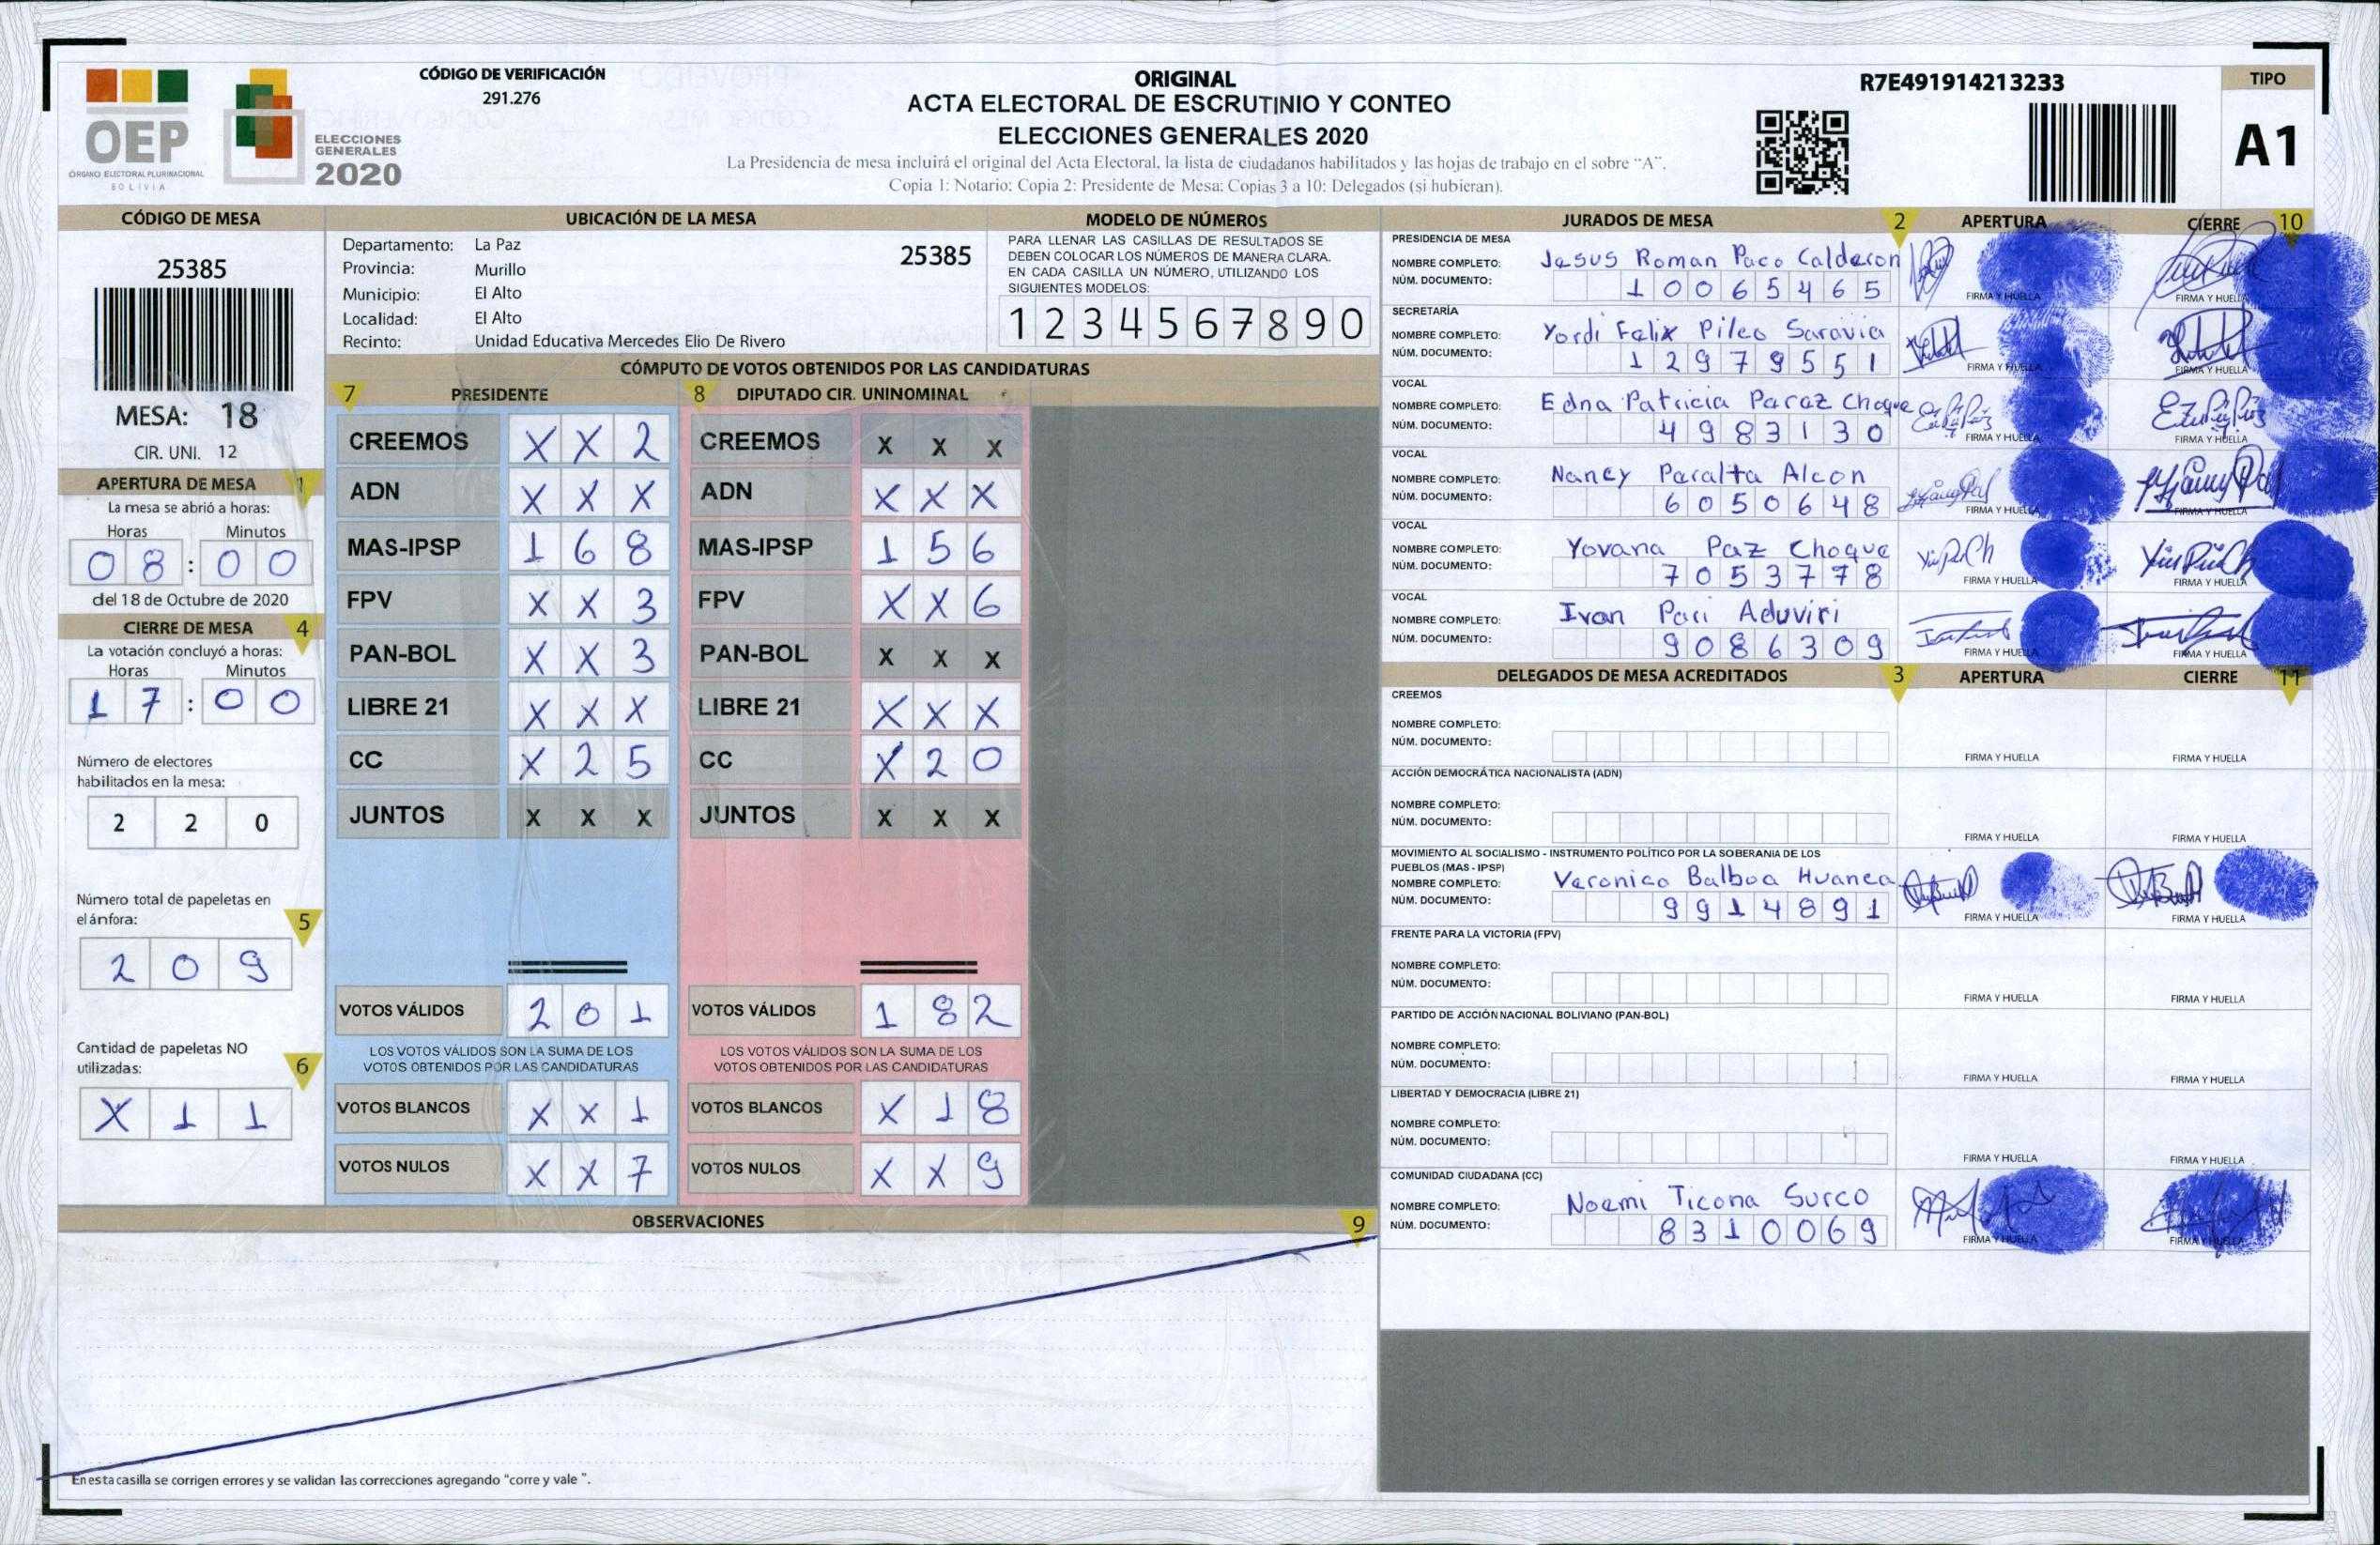 OEP
ÓRGANO ELECTORAL PLURINACIONAL
BOLIVIA
ELECCIONES
GENERALES
2020
CÓDIGO DE VERIFICACIÓN
291.276
ORIGINAL
ACTA ELECTORAL DE ESCRUTINIO Y CONTEO
ELECCIONES GENERALES 2020
La Presidencia de mesa incluirá el original del Acta Electoral, la lista de ciudadanos habilitados y las hojas de trabajo en el sobre "A".
Copia 1: Notario; Copia 2: Presidente de Mesa; Copias 3 a 10: Delegados (si hubieran).
R7E491914213233
TIPO
A1
CÓDIGO DE MESA
25385
MESA: 18
CIR. UNI. 12
APERTURA DE MESA 1
La mesa se abrió a horas:
Horas Minutos
08:00
del 18 de Octubre de 2020
CIERRE DE MESA 4
La votación concluyó a horas:
Horas Minutos
17:00
Número de electores
habilitados en la mesa:
220
Número total de papeletas en
el ánfora: 5
209
Cantidad de papeletas NO
utilizadas: 6
X11
UBICACIÓN DE LA MESA
Departamento: La Paz 25385
Provincia: Murillo
Municipio: El Alto
Localidad: El Alto
Recinto: Unidad Educativa Mercedes Elio De Rivero
MODELO DE NÚMEROS
PARA LLENAR LAS CASILLAS DE RESULTADOS SE
DEBEN COLOCAR LOS NÚMEROS DE MANERA CLARA.
EN CADA CASILLA UN NÚMERO, UTILIZANDO LOS
SIGUIENTES MODELOS:
1234567890
CÓMPUTO DE VOTOS OBTENIDOS POR LAS CANDIDATURAS
7 PRESIDENTE 8 DIPUTADO CIR. UNINOMINAL
CREEMOS XX2 CREEMOS XXX
ADN XXX ADN XXX
MAS-IPSP 168 MAS-IPSP 156
FPV XX3 FPV XX6
PAN-BOL XX3 PAN-BOL XXX
LIBRE 21 XXX LIBRE 21 XXX
CC X25 CC X20
JUNTOS XXX JUNTOS XXX
VOTOS VÁLIDOS 201 VOTOS VÁLIDOS 182
LOS VOTOS VÁLIDOS SON LA SUMA DE LOS LOS VOTOS VÁLIDOS SON LA SUMA DE LOS
VOTOS OBTENIDOS POR LAS CANDIDATURAS VOTOS OBTENIDOS POR LAS CANDIDATURAS
VOTOS BLANCOS XX1 VOTOS BLANCOS X18
VOTOS NULOS XX7 VOTOS NULOS XX9
OBSERVACIONES 9
En esta casilla se corrigen errores y se validan las correcciones agregando "corre y vale".
JURADOS DE MESA 2 APERTURA CIERRE 10
PRESIDENCIA DE MESA
NOMBRE COMPLETO: Jesus Roman Paco Calderon
NÚM. DOCUMENTO: 10065465 FIRMA Y HUELLA FIRMA Y HUELLA
SECRETARÍA
NOMBRE COMPLETO: Yordi Felix Pilco Saravia
NÚM. DOCUMENTO: 12979551 FIRMA Y HUELLA FIRMA Y HUELLA
VOCAL
NOMBRE COMPLETO: Edna Patricia Paraz Choque
NÚM. DOCUMENTO: 4983130 FIRMA Y HUELLA FIRMA Y HUELLA
VOCAL
NOMBRE COMPLETO: Nancy Paralta Alcon
NÚM. DOCUMENTO: 6050648 FIRMA Y HUELLA FIRMA Y HUELLA
VOCAL
NOMBRE COMPLETO: Yovana Paz Choque
NÚM. DOCUMENTO: 7053778 FIRMA Y HUELLA FIRMA Y HUELLA
VOCAL
NOMBRE COMPLETO: Ivan Pari Aduviri
NÚM. DOCUMENTO: 9086309 FIRMA Y HUELLA FIRMA Y HUELLA
DELEGADOS DE MESA ACREDITADOS 3 APERTURA CIERRE 11
CREEMOS
NOMBRE COMPLETO:
NÚM. DOCUMENTO: FIRMA Y HUELLA FIRMA Y HUELLA
ACCIÓN DEMOCRÁTICA NACIONALISTA (ADN)
NOMBRE COMPLETO:
NÚM. DOCUMENTO: FIRMA Y HUELLA FIRMA Y HUELLA
MOVIMIENTO AL SOCIALISMO - INSTRUMENTO POLÍTICO POR LA SOBERANIA DE LOS
PUEBLOS (MAS - IPSP)
NOMBRE COMPLETO: Veronica Balboa Huanca
NÚM. DOCUMENTO: 9914891 FIRMA Y HUELLA FIRMA Y HUELLA
FRENTE PARA LA VICTORIA (FPV)
NOMBRE COMPLETO:
NÚM. DOCUMENTO: FIRMA Y HUELLA FIRMA Y HUELLA
PARTIDO DE ACCIÓN NACIONAL BOLIVIANO (PAN-BOL)
NOMBRE COMPLETO:
NÚM. DOCUMENTO: FIRMA Y HUELLA FIRMA Y HUELLA
LIBERTAD Y DEMOCRACIA (LIBRE 21)
NOMBRE COMPLETO:
NÚM. DOCUMENTO: FIRMA Y HUELLA FIRMA Y HUELLA
COMUNIDAD CIUDADANA (CC)
NOMBRE COMPLETO: Noemi Ticona Surco
NÚM. DOCUMENTO: 8310069 FIRMA Y HUELLA FIRMA Y HUELLA